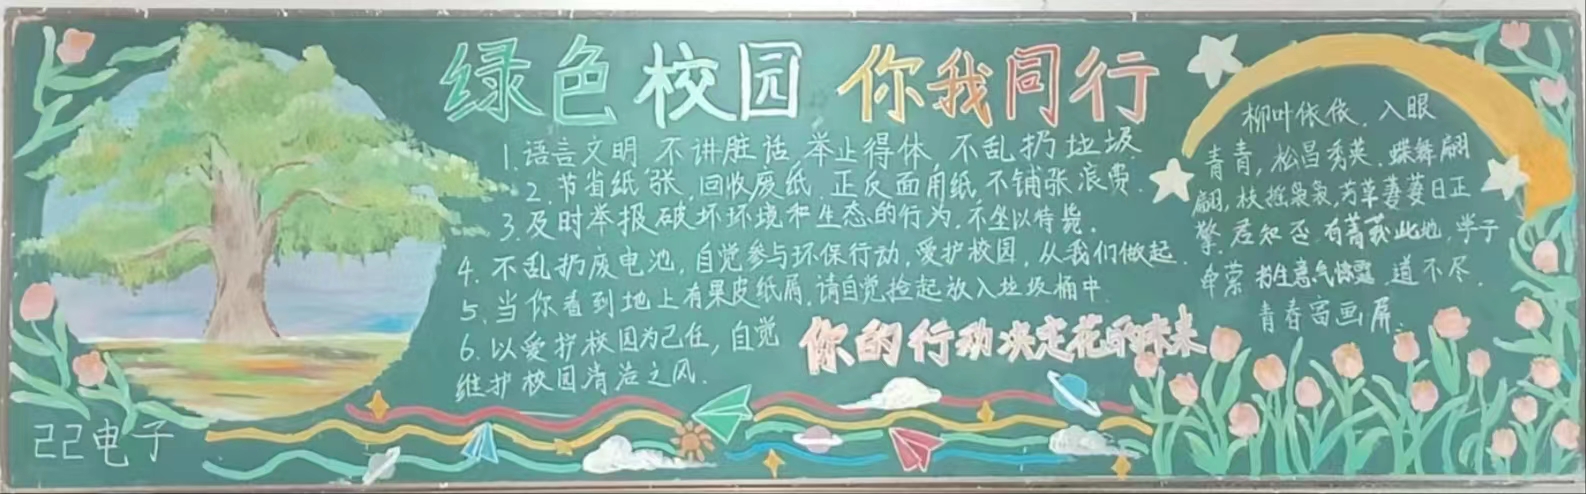 绿色校园 你我同行
1.语言文明 不讲脏话,举止得体,不乱扔垃圾.
2.节省纸张,回收废纸.正反面用纸,不铺张浪费.
3.及时举报破坏环境和生态的行为.不坐以待毙.
4.不乱扔废电池,自觉参与环保行动,爱护校园,从我们做起.
5.当你看到地上有果皮纸屑,请自觉捡起放入垃圾桶中.
6.以爱护校园为己任,自觉
维护校园清洁之风.
你的行动决定花的未来
柳叶依依,入眼
青青,松昌秀英.蝶舞翩
翩,枝摇袅袅,芳草萋萋日正
擎.君知否,有菁莪此地,学子
意气 道不尽.
青春富画屏.
22电子